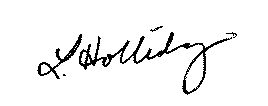 L. Holliday